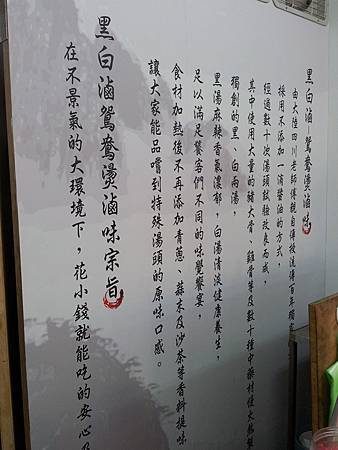 黑白滷鴛鴦燙滷味
由大陸四川老師傅親自傳授流傳百年獨家
採用不添加一滴醬油的方式，
經過數十次湯頭試驗改良而成，
其中使用大量的豬大骨、雞骨等及數十種中藥材慢火熬製
獨創的黑、白兩湯，
黑湯麻辣香氣濃郁，白湯清淡健康養生，
足以滿足饕客們不同的味覺饗宴，
食材加熱後不再添加青蔥、蒜末及沙茶等香料提味
讓大家能品嚐到特殊湯頭的原味口感。
黑白滷鴛鴦燙滷味宗旨
在不景氣的大環境下，花小錢就能吃的安心及